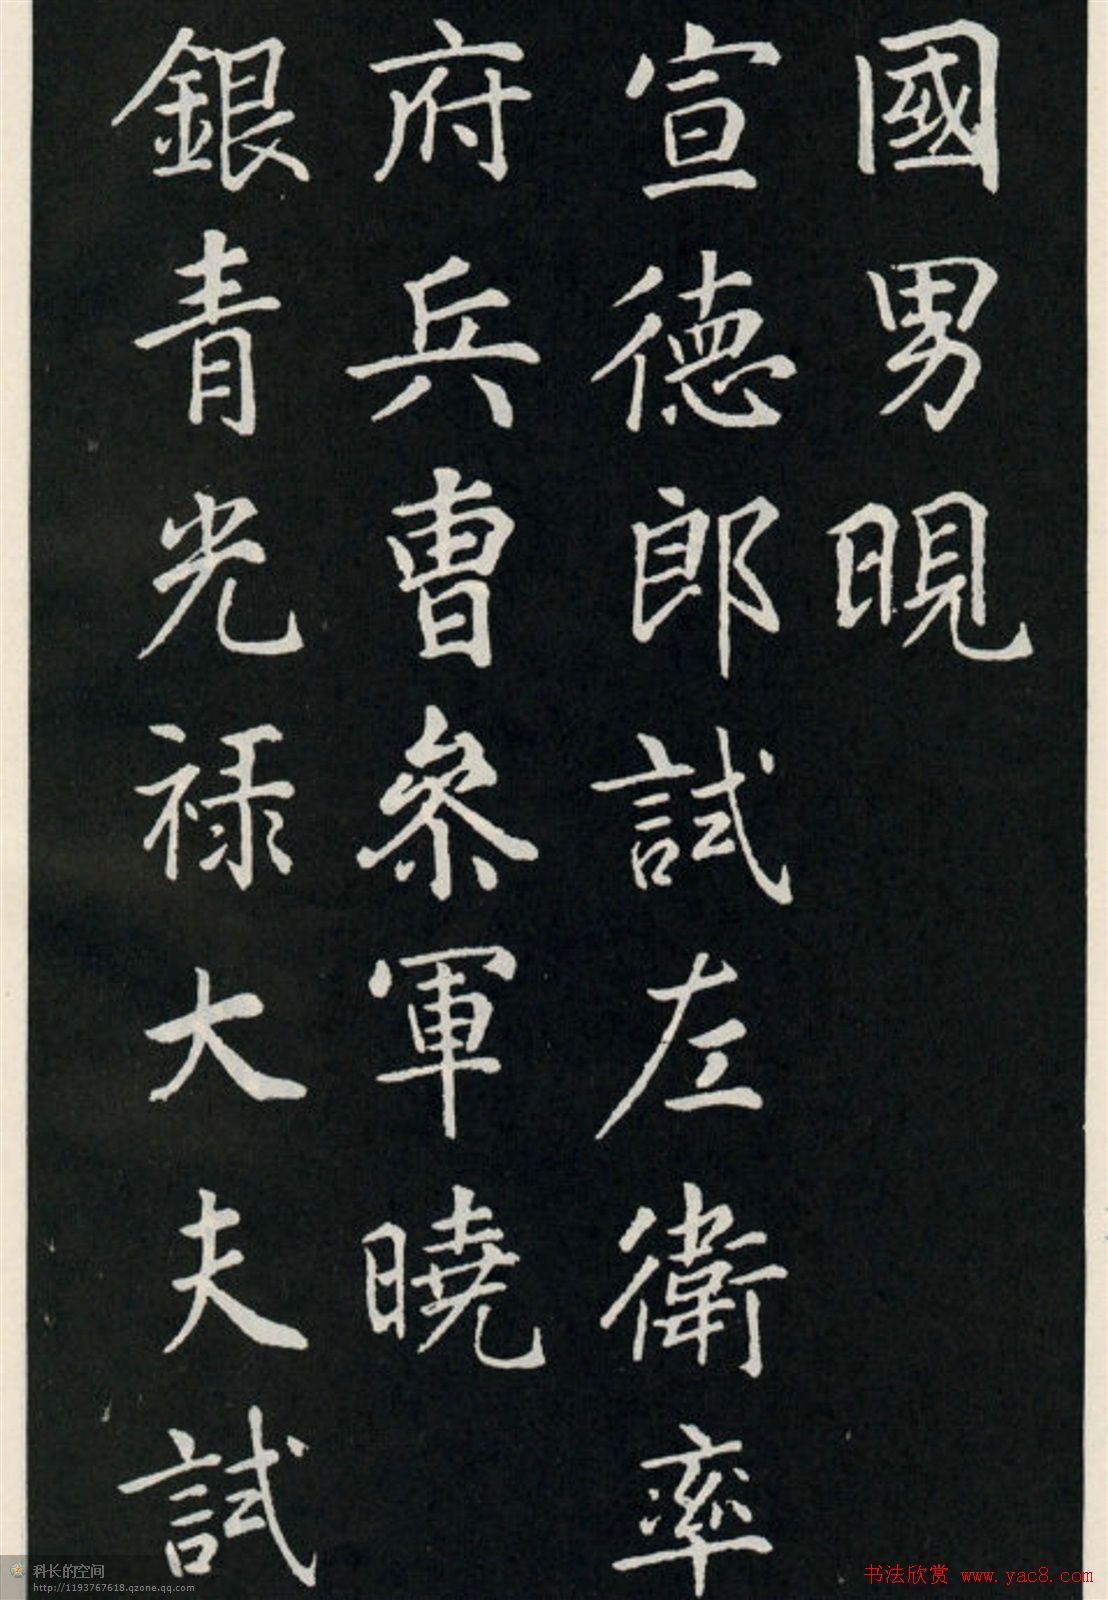 國男晛
宣德郎試左衛率
府兵曹參軍曉
銀青光禄大夫試
科长的空间
http://1193767618.qzone.qq.com
书法欣赏 www.yac8.com